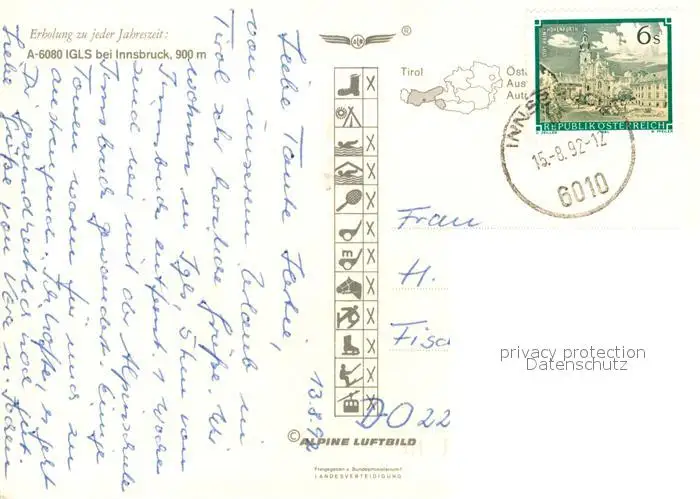 Erholung zu jeder Jahreszeit:
A-6080 IGLS bei Innsbruck, 900 m
13.8.92
Liebe Tante
von unserem Urlaub in
Tirol sehr herzliche Grüße. Wir
wohnen in Igls 5 km von
Innsbruck entfernt. 1 Woche
sind wir mit der Alpinschule
Innsbruck gewandert. Einige
Touren waren für uns zu
anstrengend. Ich hoffe, es geht
Dir gesundheitlich gut.
Liebe Grüße von Vera u. Jochen
®
Tirol
Öst
Aus
Auto
6 s
REPUBLIK ÖSTERREICH
INNS
15.-8.92-12
6010
Frau
H.
Fisc
D-O 22
© ALPINE LUFTBILD
Freigegeben v. Bundesministerium f.
LANDESVERTEIDIGUNG
privacy protection
Datenschutz